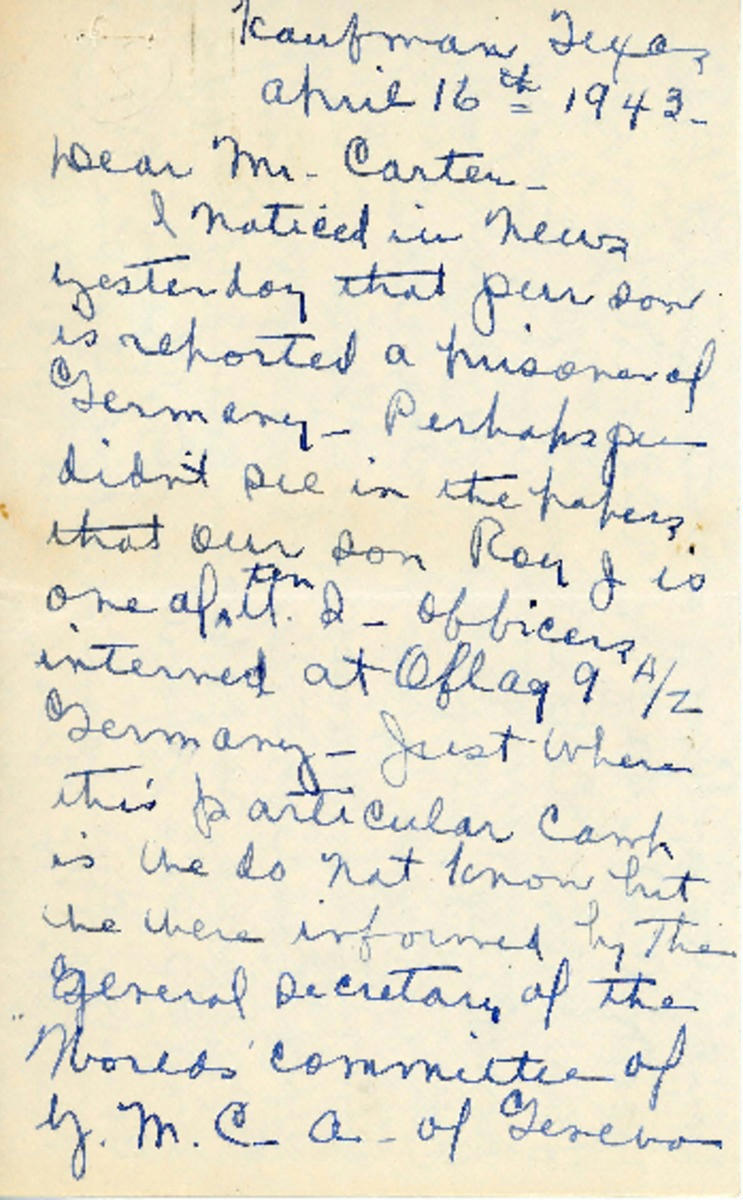 Kaufman Texas,
April 16th 1943-
Dear Mr. Carter-
I noticed in News
yesterday that your son
is reported a prisoner of
Germany- Perhaps you
didn't see in the papers,
that our son Roy J is
one of ten U. S- officers,
interned at Oflag 9 A/Z
Germany- Just where
this particular camp
is we do not know but
we were informed by The
General secretary of the
"Worlds' committee of
Y. M. C. A- of Geneva